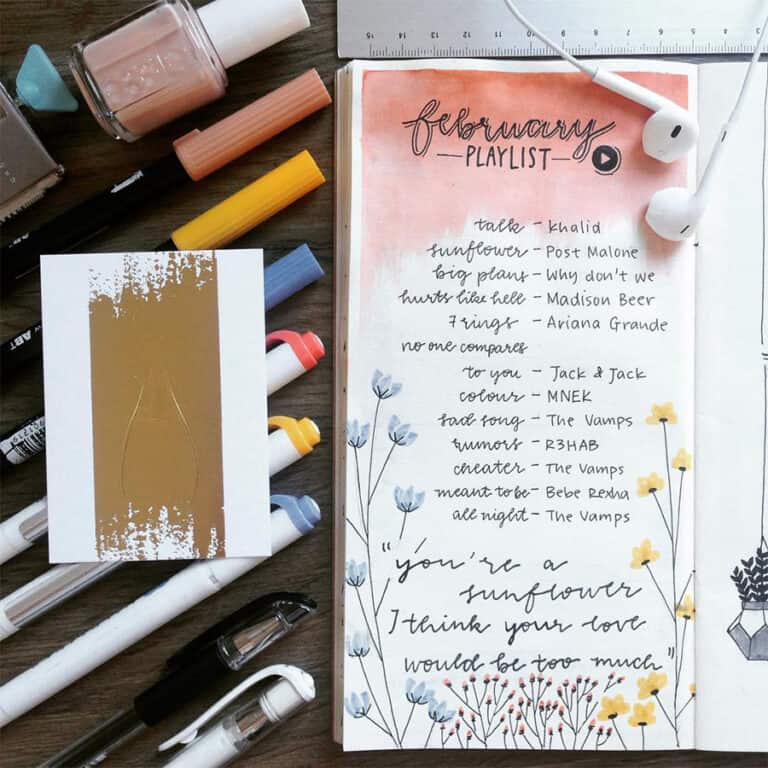 15 14 13 12 11 10 9 8 7 6 5 4 3
february
PLAYLIST
talk - Khalid
sunflower - Post Malone
big plans - Why don't we
hurts like hell - Madison Beer
7 rings - Ariana Grande
no one compares
to you - Jack & Jack
colour - MNEK
sad song - The Vamps
rumors - R3HAB
cheater - The Vamps
meant to be - Bebe Rexha
all night - The Vamps
"you're a
sunflower
I think your love
would be too much"
essie
ABT